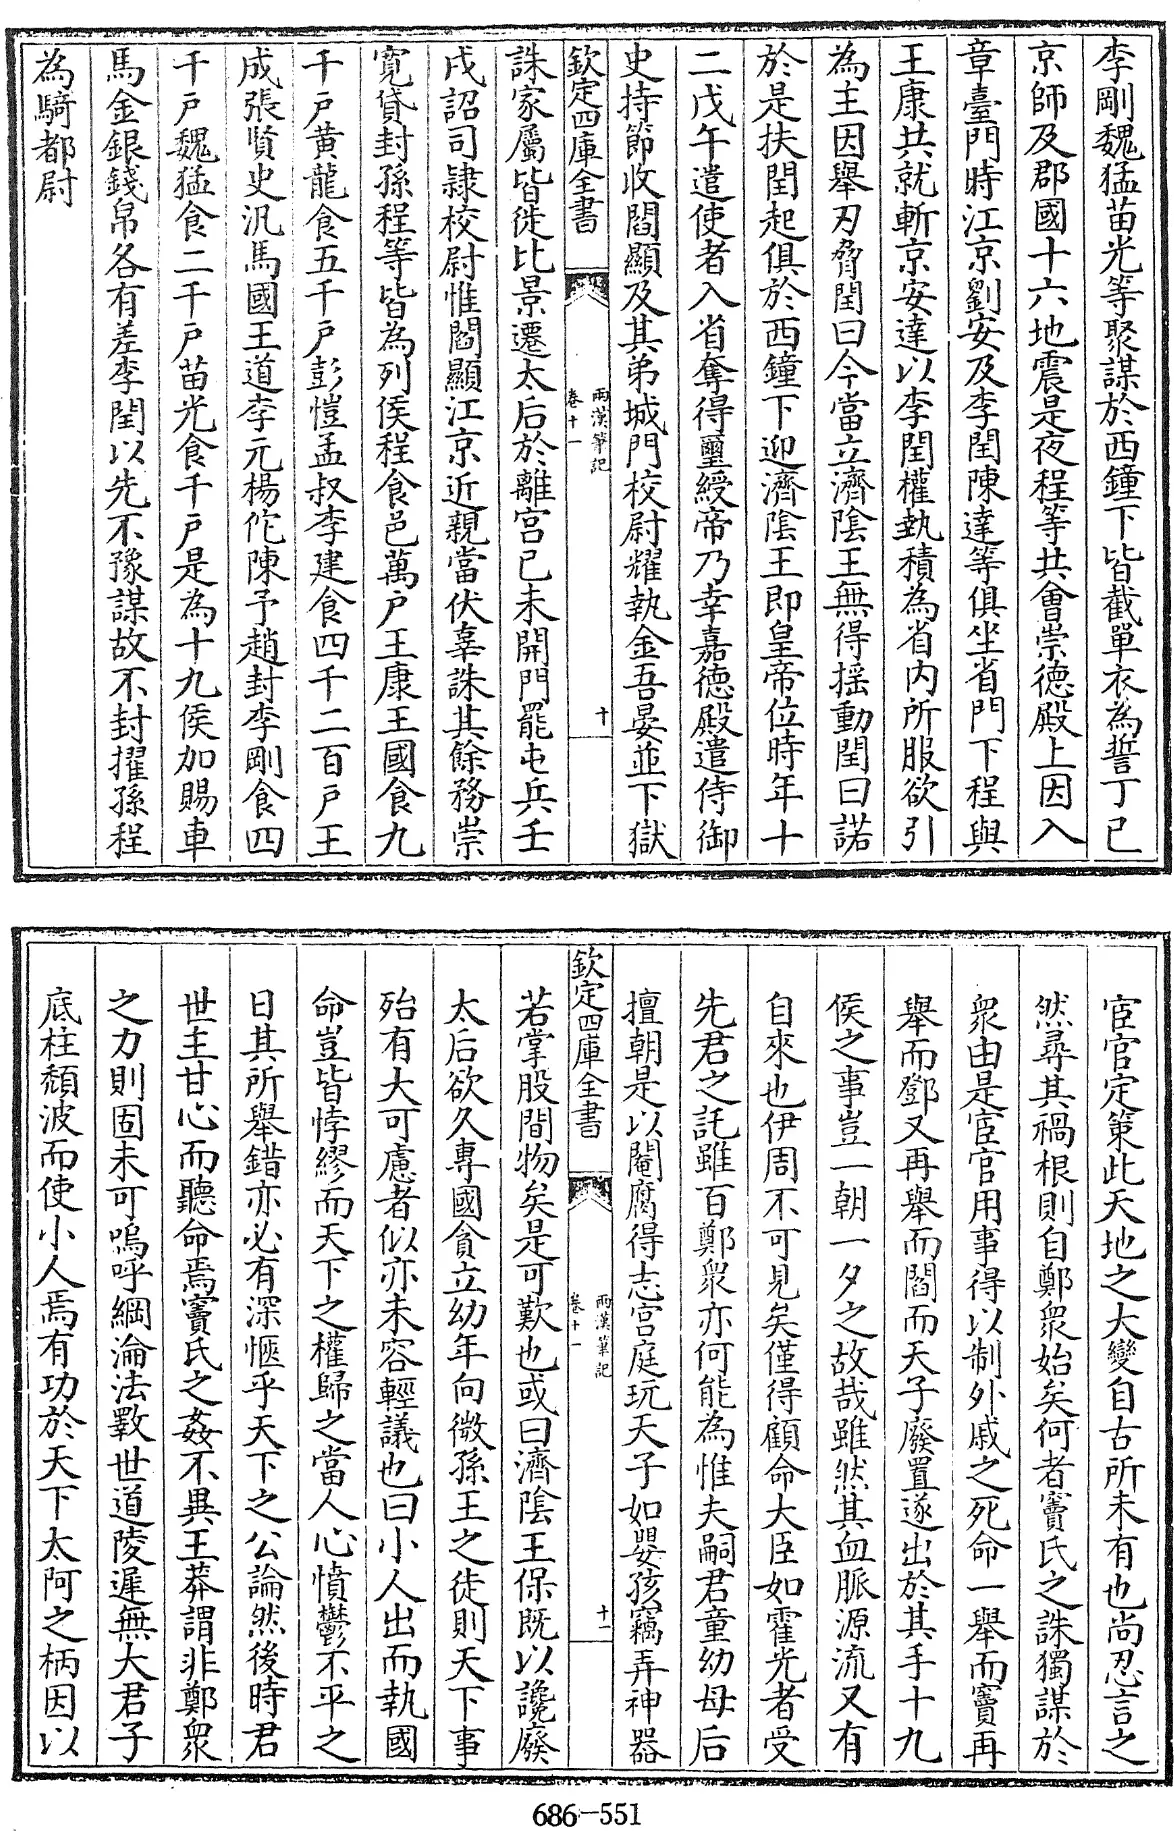 李剛魏猛苗光等聚謀於西鐘下皆截單衣為誓丁巳
京師及郡國十六地震是夜程等共會崇德殿上因入
章臺門時江京劉安及李閏陳達等俱坐省門下程與
王康共就斬京安達以李閏權埶積為省内所服欲引
為主因舉刃脅閏曰今當立濟隂王無得摇動閏曰諾
於是扶閏起俱於西鐘下迎濟隂王即皇帝位時年十
二戊午遣使者入省奪得璽綬帝乃幸嘉德殿遣侍御
史持節收閻顯及其弟城門校尉耀執金吾晏並下獄
欽定四庫全書
兩漢筆記
卷十一
十
誅家屬皆徙比景遷太后於離宫已未開門罷屯兵壬
戌詔司隸校尉惟閻顯江京近親當伏辜誅其餘務崇
寛貸封孫程等皆為列侯程食邑萬户王康王國食九
千户黄龍食五千户彭愷孟叔李建食四千二百户王
成張賢史汎馬國王道李元楊佗陳予趙封李剛食四
千户魏猛食二千户苗光食千户是為十九侯加賜車
馬金銀錢帛各有差李閏以先不豫謀故不封擢孫程
為騎都尉
宦官定策此天地之大變自古所未有也尚忍言之
然尋其禍根則自鄭衆始矣何者竇氏之誅獨謀於
衆由是宦官用事得以制外戚之死命一舉而竇再
舉而鄧又再舉而閻而天子廢置遂出於其手十九
侯之事豈一朝一夕之故哉雖然其血脈源流又有
自來也伊周不可見矣僅得顧命大臣如霍光者受
先君之託雖百鄭衆亦何能為惟夫嗣君童幼母后
擅朝是以閹腐得志宫庭玩天子如嬰孩竊弄神器
欽定四庫全書
兩漢筆記
卷十一
十一
若掌股間物矣是可歎也或曰濟隂王保既以讒廢
太后欲久專國貪立幼年向微孫王之徒則天下事
殆有大可慮者似亦未容輕議也曰小人出而執國
命豈皆悖繆而天下之權歸之當人心憤鬱不平之
日其所舉錯亦必有深愜乎天下之公論然後時君
世主甘心而聽命焉竇氏之姦不異王莽謂非鄭衆
之力則固未可嗚呼綱淪法斁世道陵遲無大君子
底柱頽波而使小人焉有功於天下太阿之柄因以
686-551